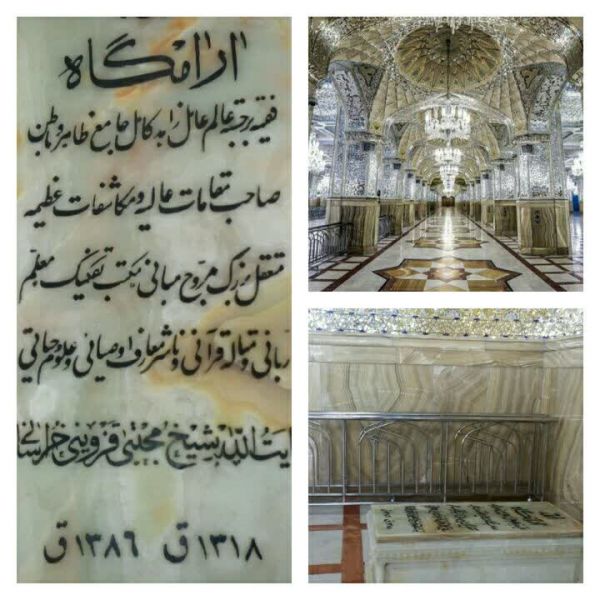 آرامگاه
فقیه برجسته عالم عامل زاهد کامل جامع ظاهر و باطن
صاحب مقامات عالیه و مکاشفات عظیمه
متعقل بزرگ مروج مبانی مکتب تفکیک معلم
ربانی و متاله قرآنی و ناشر معارف اوصیائی و علوم حیاتی
آیت الله شیخ مجتبی قزوینی خراسانی
۱۳۱۸ق ۱۳۸۶ق